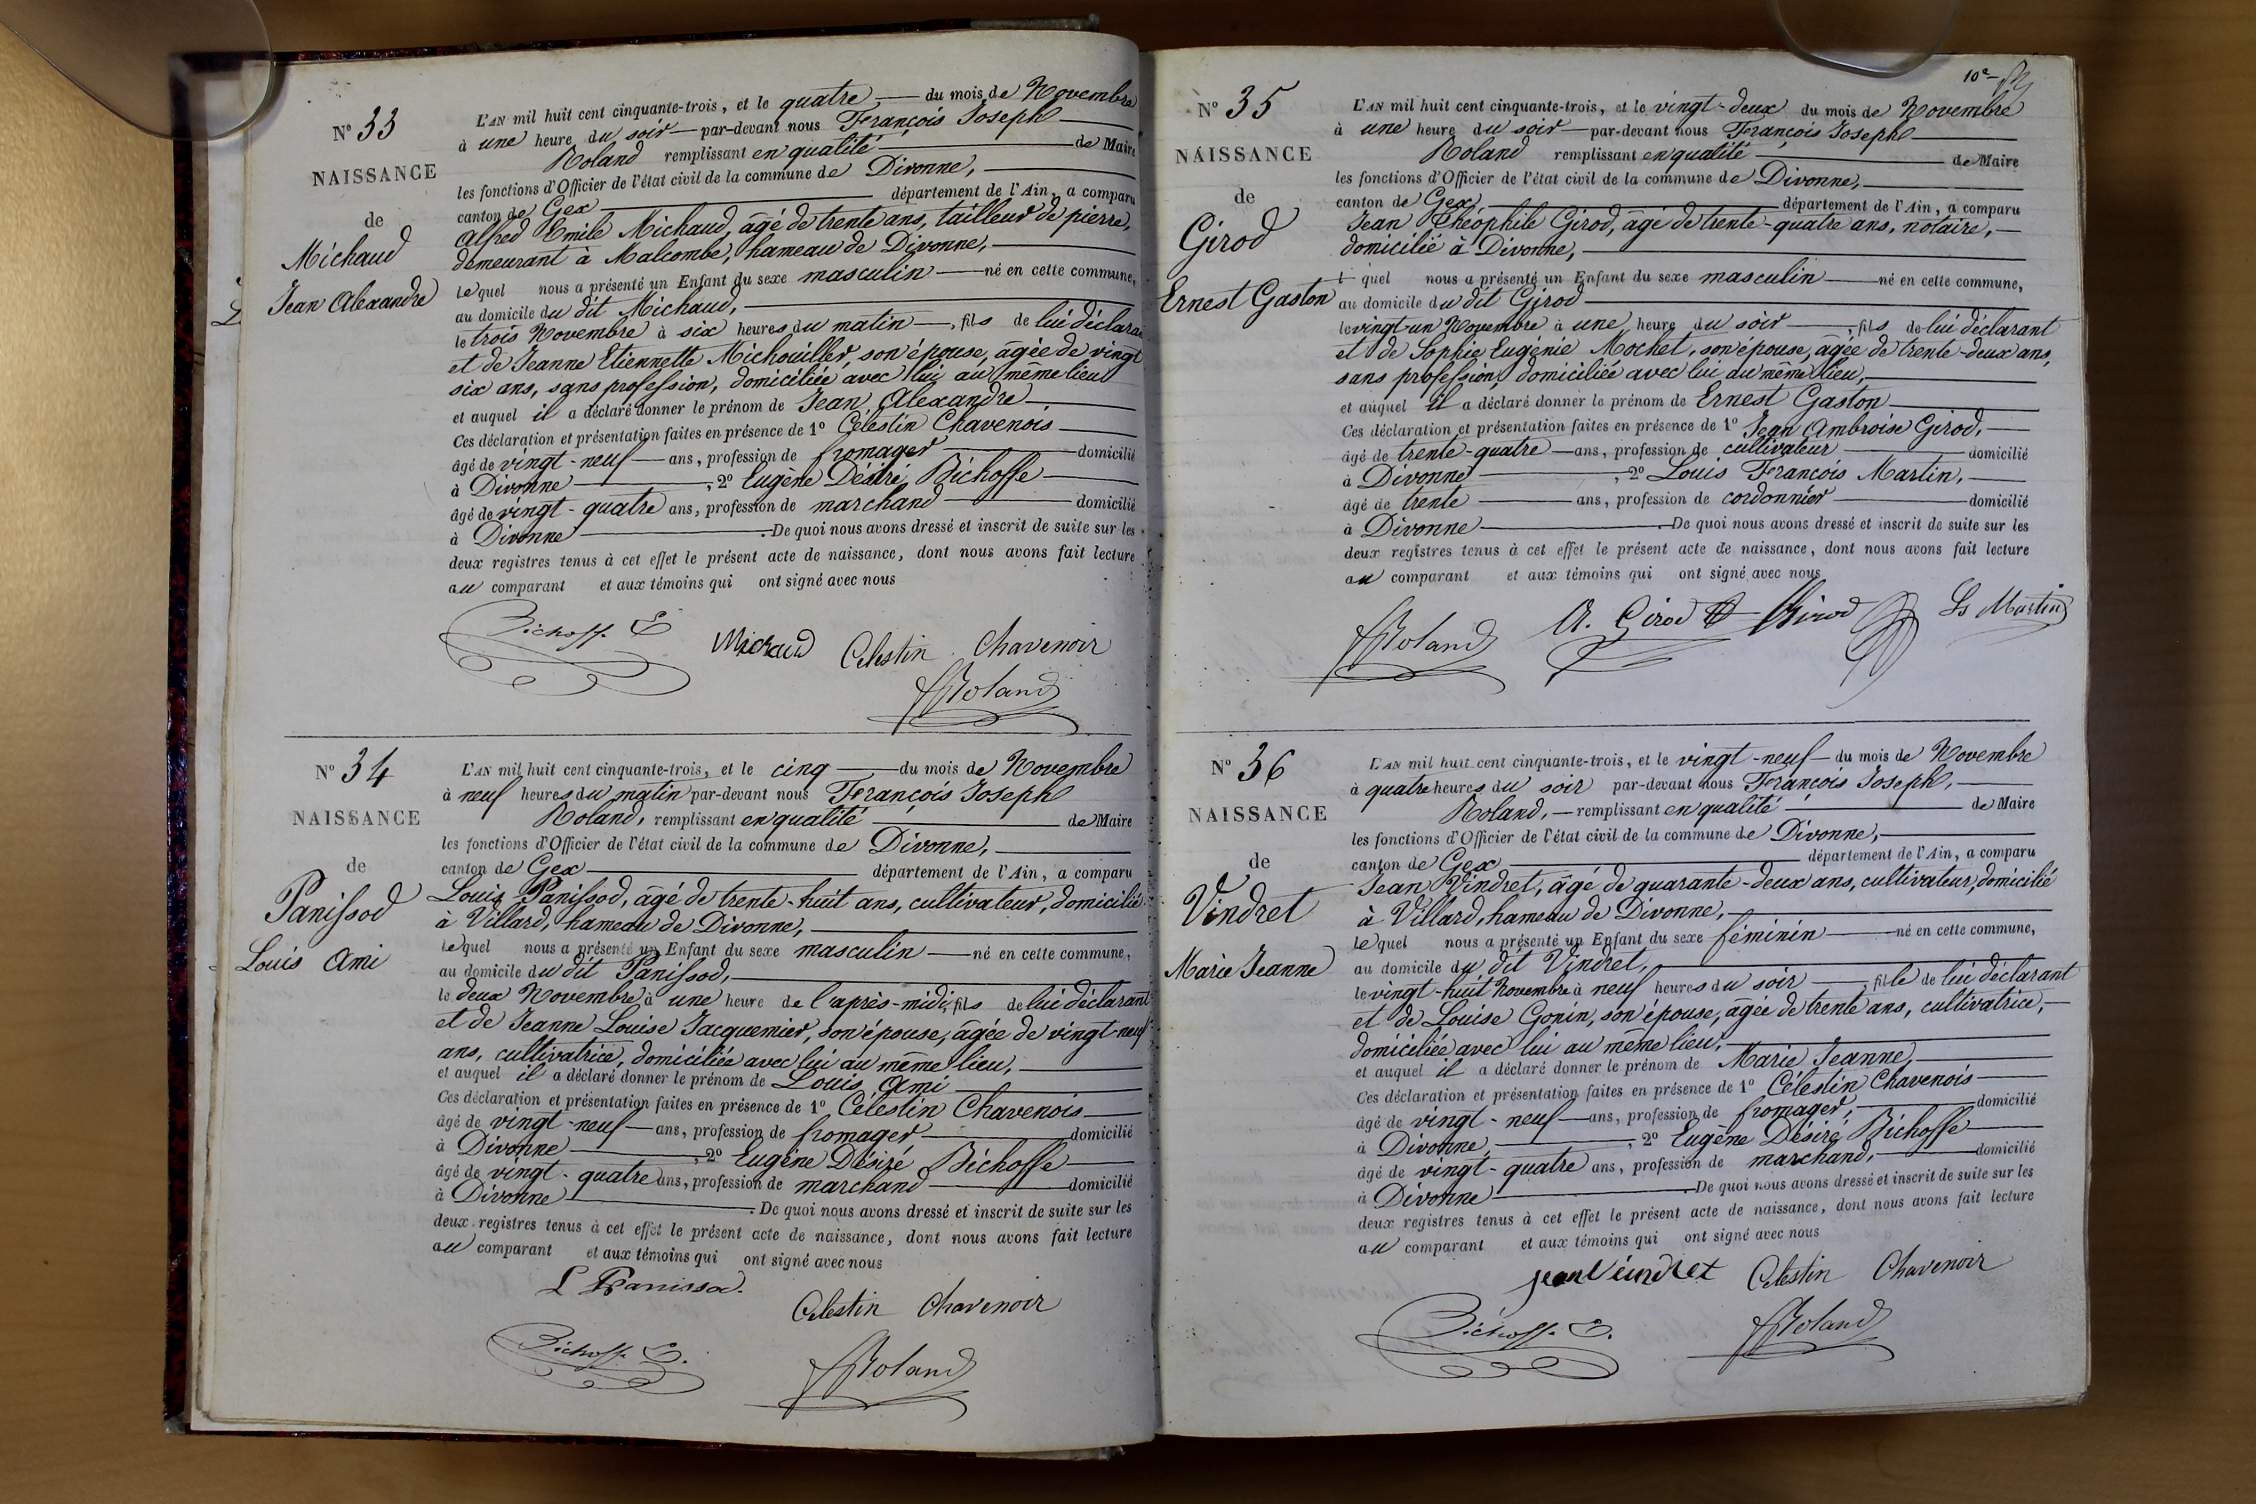 N° 33
NAISSANCE
de
Michaud
Jean Alexandre
L'AN mil huit cent cinquante-trois, et le quatre du mois de Novembre
à une heure du soir par-devant nous François Joseph
Roland remplissant en qualité de Maire
les fonctions d'Officier de l'état civil de la commune de Divonne,
canton de Gex département de l'Ain, a comparu
Alfred Emile Michaud, âgé de trente ans, tailleur de pierre,
demeurant à Malcombe, hameau de Divonne,
lequel nous a présenté un Enfant du sexe masculin né en cette commune,
au domicile du dit Michaud,
le trois Novembre à six heures du matin, fils de lui déclarant
et de Jeanne Etiennette Michouiller, son épouse, âgée de vingt
six ans, sans profession, domiciliée avec lui au même lieu
et auquel il a déclaré donner le prénom de Jean Alexandre
Ces déclaration et présentation faites en présence de 1° Célestin Chavenois
âgé de vingt-neuf ans, profession de fromager domicilié
à Divonne, 2° Eugène Désiré Bichoffe
âgé de vingt-quatre ans, profession de marchand domicilié
à Divonne. De quoi nous avons dressé et inscrit de suite sur les
deux registres tenus à cet effet le présent acte de naissance, dont nous avons fait lecture
au comparant et aux témoins qui ont signé avec nous
Bichoff. E Michaud Celestin Chavenoir
Roland
N° 34
NAISSANCE
de
Panissod
Louis Ami
L'AN mil huit cent cinquante-trois, et le cinq du mois de Novembre
à neuf heures du matin par-devant nous François Joseph
Roland, remplissant en qualité de Maire
les fonctions d'Officier de l'état civil de la commune de Divonne,
canton de Gex département de l'Ain, a comparu
Louis Panissod, âgé de trente-huit ans, cultivateur, domicilié
à Villard, hameau de Divonne,
lequel nous a présenté un Enfant du sexe masculin né en cette commune,
au domicile du dit Panissod,
le deux Novembre à une heure de l'après-midi, fils de lui déclarant
et de Jeanne Louise Jacquemier, son épouse, âgée de vingt-neuf
ans, cultivatrice, domiciliée avec lui au même lieu,
et auquel il a déclaré donner le prénom de Louis Ami
Ces déclaration et présentation faites en présence de 1° Célestin Chavenois
âgé de vingt-neuf ans, profession de fromager domicilié
à Divonne, 2° Eugène Désiré Bichoffe
âgé de vingt-quatre ans, profession de marchand domicilié
à Divonne. De quoi nous avons dressé et inscrit de suite sur les
deux registres tenus à cet effet le présent acte de naissance, dont nous avons fait lecture
au comparant et aux témoins qui ont signé avec nous
L Panissod.
Celestin Chavenoir
Bichoff. E. Roland
10e
N° 35
NAISSANCE
de
Girod
Ernest Gaston
L'AN mil huit cent cinquante-trois, et le vingt-deux du mois de Novembre
à une heure du soir par-devant nous François Joseph
Roland remplissant en qualité de Maire
les fonctions d'Officier de l'état civil de la commune de Divonne,
canton de Gex, département de l'Ain, a comparu
Jean Théophile Girod, âgé de trente-quatre ans, notaire,
domicilié à Divonne,
lequel nous a présenté un Enfant du sexe masculin né en cette commune,
au domicile du dit Girod
le vingt-un Novembre à une heure du soir, fils de lui déclarant
et de Sophie Eugénie Mochet, son épouse, âgée de trente-deux ans,
sans profession, domiciliée avec lui au même lieu,
et auquel il a déclaré donner le prénom de Ernest Gaston
Ces déclaration et présentation faites en présence de 1° Jean Ambroise Girod,
âgé de trente-quatre ans, profession de cultivateur domicilié
à Divonne, 2° Louis François Martin,
âgé de trente ans, profession de cordonnier domicilié
à Divonne. De quoi nous avons dressé et inscrit de suite sur les
deux registres tenus à cet effet le présent acte de naissance, dont nous avons fait lecture
au comparant et aux témoins qui ont signé avec nous
Roland A. Girod Girod Ls Martin
N° 36
NAISSANCE
de
Vindret
Marie Jeanne
L'AN mil huit cent cinquante-trois, et le vingt-neuf du mois de Novembre
à quatre heures du soir par-devant nous François Joseph,
Roland, remplissant en qualité de Maire
les fonctions d'Officier de l'état civil de la commune de Divonne,
canton de Gex département de l'Ain, a comparu
Jean Vindret, âgé de quarante-deux ans, cultivateur, domicilié
à Villard, hameau de Divonne,
lequel nous a présenté un Enfant du sexe féminin né en cette commune,
au domicile du dit Vindret,
le vingt-huit Novembre à neuf heures du soir, fille de lui déclarant
et de Louise Gonin, son épouse, âgée de trente ans, cultivatrice,
domiciliée avec lui au même lieu,
et auquel il a déclaré donner le prénom de Marie Jeanne,
Ces déclaration et présentation faites en présence de 1° Célestin Chavenois
âgé de vingt-neuf ans, profession de fromager, domicilié
à Divonne, 2° Eugène Désiré Bichoffe
âgé de vingt-quatre ans, profession de marchand, domicilié
à Divonne. De quoi nous avons dressé et inscrit de suite sur les
deux registres tenus à cet effet le présent acte de naissance, dont nous avons fait lecture
au comparant et aux témoins qui ont signé avec nous
jean Veindret Celestin Chavenoir
Bichoff. E. Roland